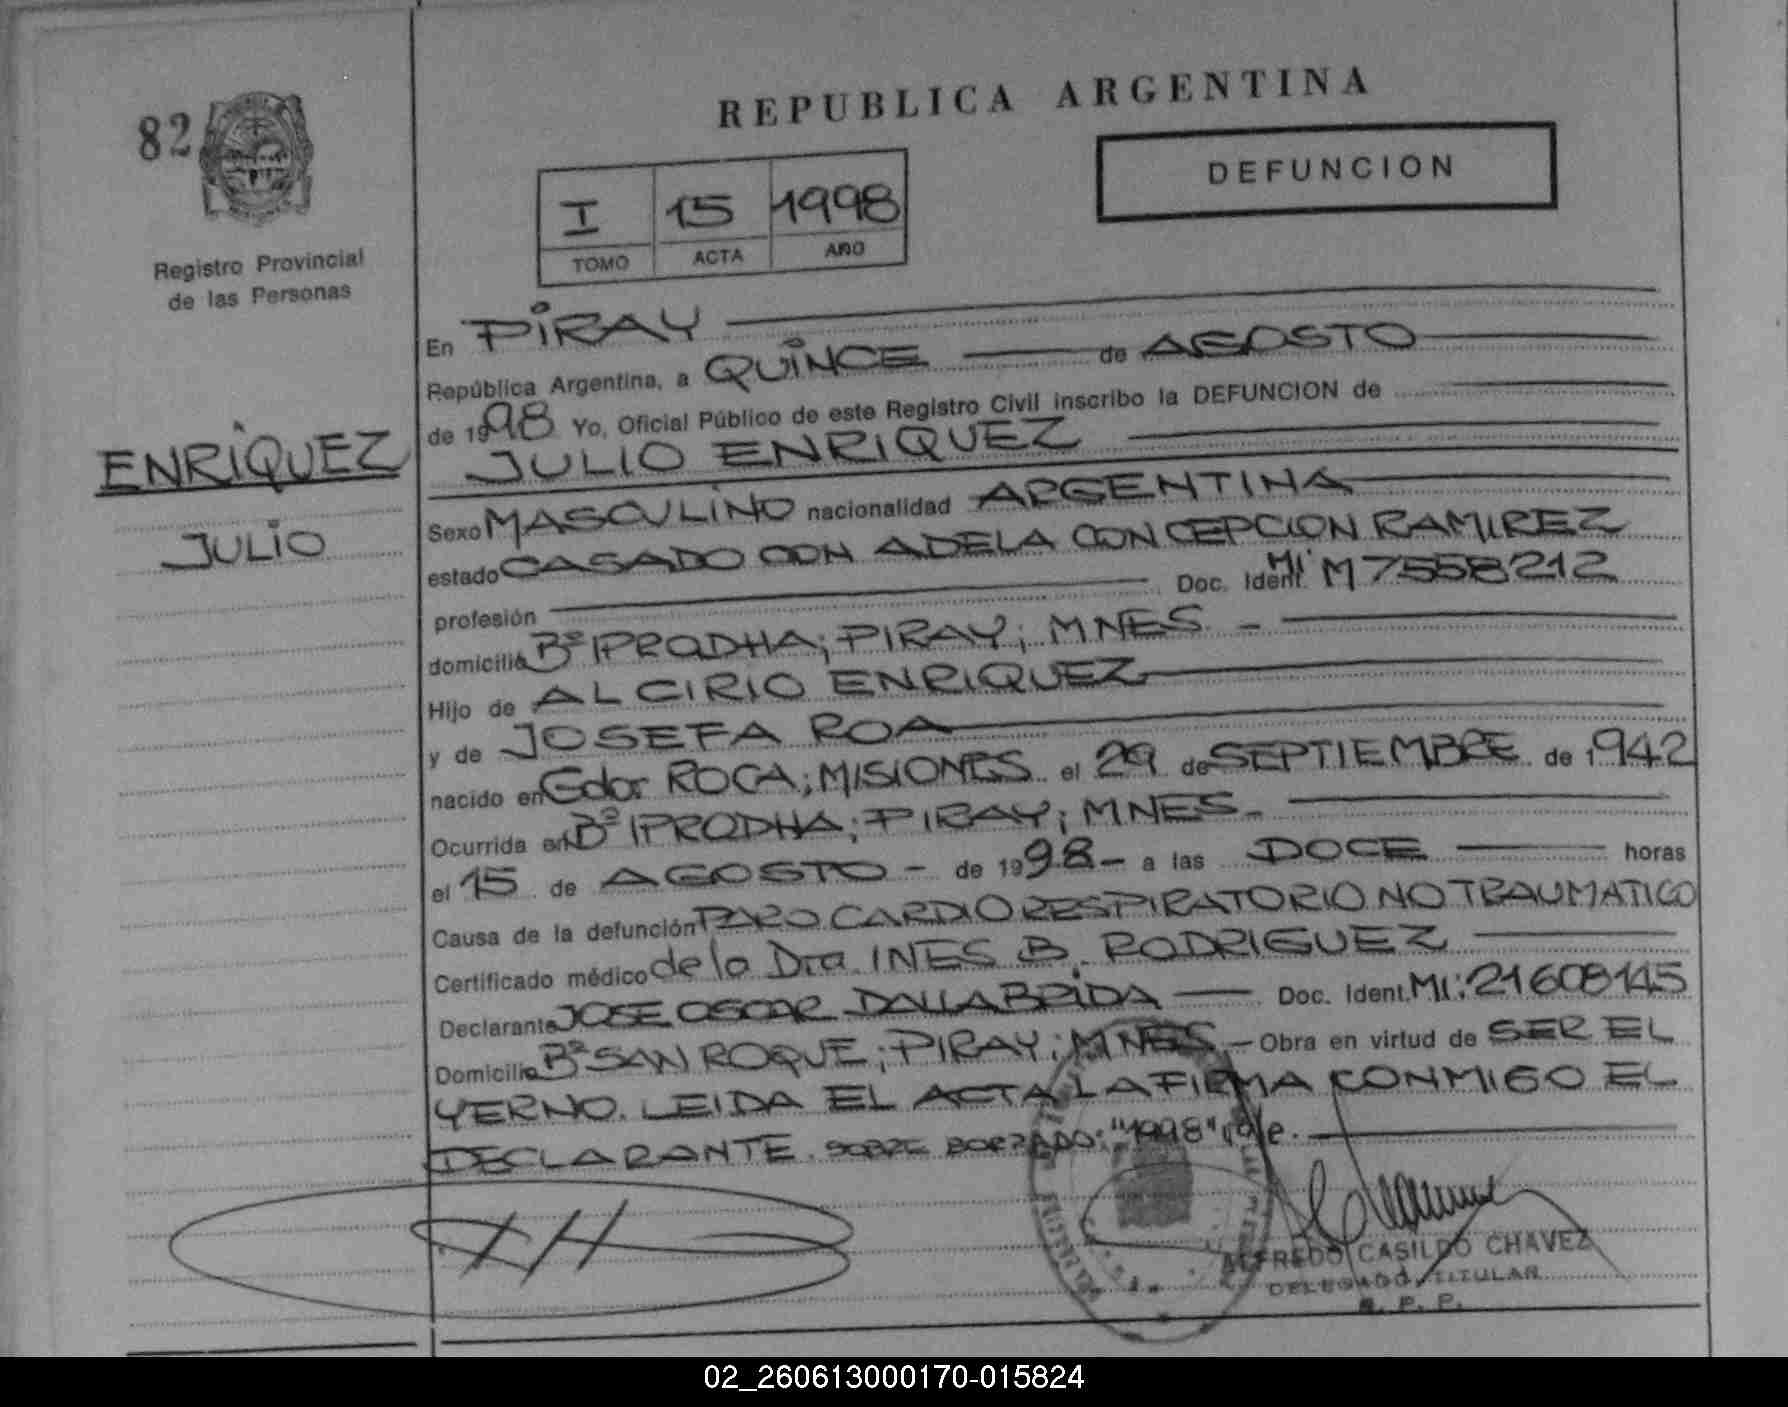 REPUBLICA ARGENTINA
82
DEFUNCION
I 15 1998
TOMO ACTA AÑO
Registro Provincial
de las Personas
ENRIQUEZ
JULIO
En PIRAY
República Argentina, a QUINCE de AGOSTO
de 1998 Yo, Oficial Público de este Registro Civil inscribo la DEFUNCION de
JULIO ENRIQUEZ
Sexo MASCULINO nacionalidad ARGENTINA
estado CASADO CON ADELA CONCEPCION RAMIREZ
profesión Doc. Ident. MI M7558212
domicilio Bº IPRODHA; PIRAY; MNES. -
Hijo de ALCIRIO ENRIQUEZ
y de JOSEFA ROA
nacido en Gdor ROCA; MISIONES. el 29 de SEPTIEMBRE de 1942
Ocurrida en Bº IPRODHA; PIRAY; MNES. -
el 15 de AGOSTO - de 1998 - a las DOCE horas
Causa de la defunción PARO CARDIORESPIRATORIO NO TRAUMATICO
Certificado médico de la Dra. INES B. RODRIGUEZ
Declarante JOSE OSCAR DALLABRIDA Doc. Ident. MI: 21608145
Domicilio Bº SAN ROQUE; PIRAY; MNES - Obra en virtud de SER EL
YERNO. LEIDA EL ACTA LA FIRMA CONMIGO EL
DECLARANTE. SOBRE BORRADO: "1998" vale.
ALFREDO CASILDO CHAVEZ
DELEGADO TITULAR
R. P. P.
02_260613000170-015824